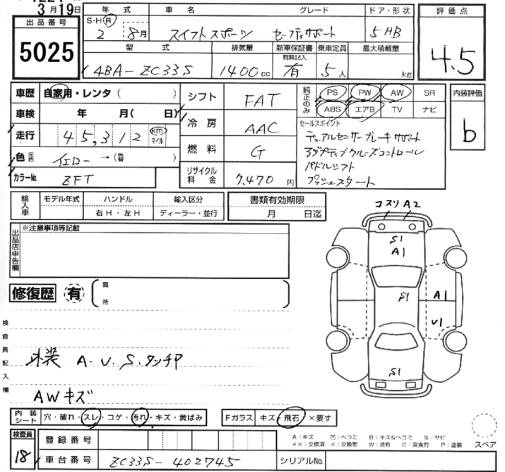 3月19日
出品番号
5025
年式 車名 グレード ドア・形状
S・H・R 2 8月 スイフトスポーツ セーフティサポート 5HB
型式 排気量 新車保証書 有無記入 乗車定員 最大積載量
4BA-ZC33S 1400cc 有 5人 kg
評価点
4.5
車歴 自家用・レンタ( )
車検 年 月( 日)
走行 45,312 km マイル
色 イエロー →( )
カラーNo. ZFT
シフト FAT
冷房 AAC
燃料 G
リサイクル料金 7,470円
純正のみ PS PW AW SR
ABS エアB TV ナビ
セールスポイント
デュアルセンサーブレーキサポート
アダプティブクルーズコントロール
パドルシフト
プッシュスタート
内装評価
b
輸入車 モデル年式 ハンドル 輸入区分
右H・左H ディーラー・並行
書類有効期限
月 日迄
出品店申告欄
※注意事項等記載
修復歴 有 箇所
検査員記入欄
外装 A.U.S.タッチP
AWキズ
コスリA2
S1
A1
S1
A1
U1
S1
内装シート 穴・破れ・スレ・コゲ・汚れ・キズ・黄ばみ
Fガラス キズ・飛石×要す
検査員
18
登録番号
車台番号 ZC33S-402745
シリアルNo.
A:キズ B:キズ&ヘコミ S:サビ
××:交換済 ×:交換要 W:波有 C:腐食有 P:塗装
スペア